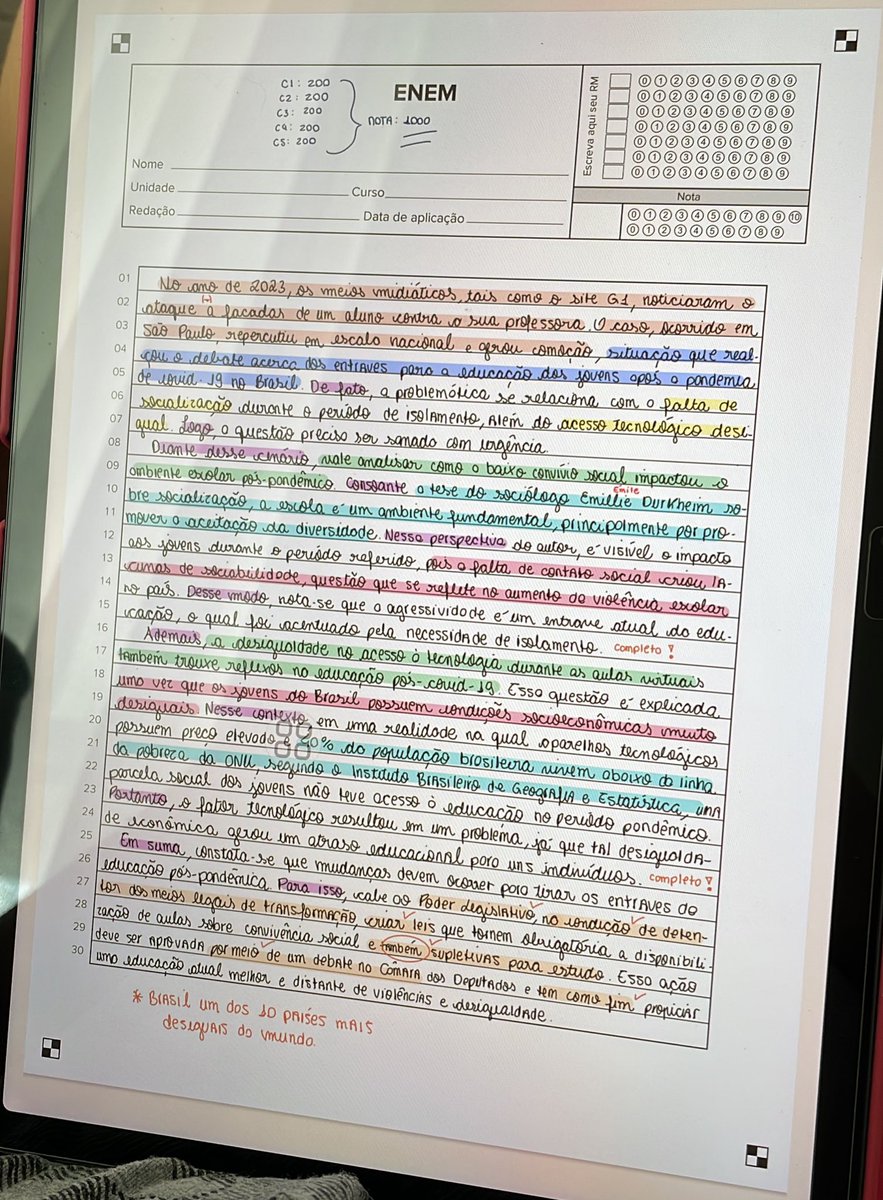 C1: 200
C2: 200
C3: 200
C4: 200
C5: 200
NOTA: 1000
ENEM
Nome
Unidade
Curso
Redação
Data de aplicação
Escreva aqui seu RM
0 1 2 3 4 5 6 7 8 9
0 1 2 3 4 5 6 7 8 9
0 1 2 3 4 5 6 7 8 9
0 1 2 3 4 5 6 7 8 9
0 1 2 3 4 5 6 7 8 9
0 1 2 3 4 5 6 7 8 9
0 1 2 3 4 5 6 7 8 9
Nota
0 1 2 3 4 5 6 7 8 9 10
0 1 2 3 4 5 6 7 8 9
01 No ano de 2023, os meios midiáticos, tais como o site G1, noticiaram o
02 ataque à facadas de um aluno contra a sua professora. O caso, ocorrido em
(-)
03 São Paulo, repercutiu em escala nacional e gerou comoção, situação que real-
04 çou o debate acerca dos entraves para a educação dos jovens após a pandemia
05 de covid-19 no Brasil. De fato, a problemática se relaciona com a falta de
06 socialização durante o período de isolamento, além do acesso tecnológico desi-
07 gual. Logo, a questão precisa ser sanada com urgência.
08 Diante desse cenário, vale analisar como o baixo convívio social impactou o
09 ambiente escolar pós-pandêmico. Consoante a tese do sociólogo Emillie Durkheim so-
Emile
10 bre socialização, a escola é um ambiente fundamental, principalmente por pro-
11 mover a aceitação da diversidade. Nessa perspectiva do autor, é visível o impacto
12 aos jovens durante o período referido, pois a falta de contato social criou la-
13 cunas de sociabilidade, questão que se reflete no aumento da violência escolar
14 no país. Desse modo, nota-se que a agressividade é um entrave atual da edu-
15 cação, o qual foi acentuado pela necessidade de isolamento.
completo!
16 Ademais, a desigualdade no acesso à tecnologia durante as aulas virtuais
17 também trouxe reflexos na educação pós-covid-19. Essa questão é explicada
18 uma vez que os jovens do Brasil possuem condições socioeconômicas muito
19 desiguais. Nesse contexto em uma realidade na qual aparelhos tecnológicos
20 possuem preço elevado e 0% da população brasileira vivem abaixo da linha
21 da pobreza da ONU, segundo o Instituto Brasileiro de Geografia e Estatística, uma
22 parcela social dos jovens não teve acesso à educação no período pandêmico.
23 Portanto, o fator tecnológico resultou em um problema, já que tal desigualda-
24 de econômica gerou um atraso educacional para uns indivíduos.
completo!
25 Em suma, constata-se que mudanças devem ocorrer para tirar os entraves da
26 educação pós-pandêmica. Para isso, cabe ao Poder Legislativo, na condição de deten-
27 tor dos meios legais de transformação, criar leis que tornem obrigatória a disponibili-
28 zação de aulas sobre convivência social e também supletivas para estudo. Essa ação
29 deve ser aprovada por meio de um debate na Câmara dos Deputados e tem como fim propiciar
30 uma educação atual melhor e distante de violências e desigualdade.
* Brasil um dos 10 países mais
desiguais do mundo.